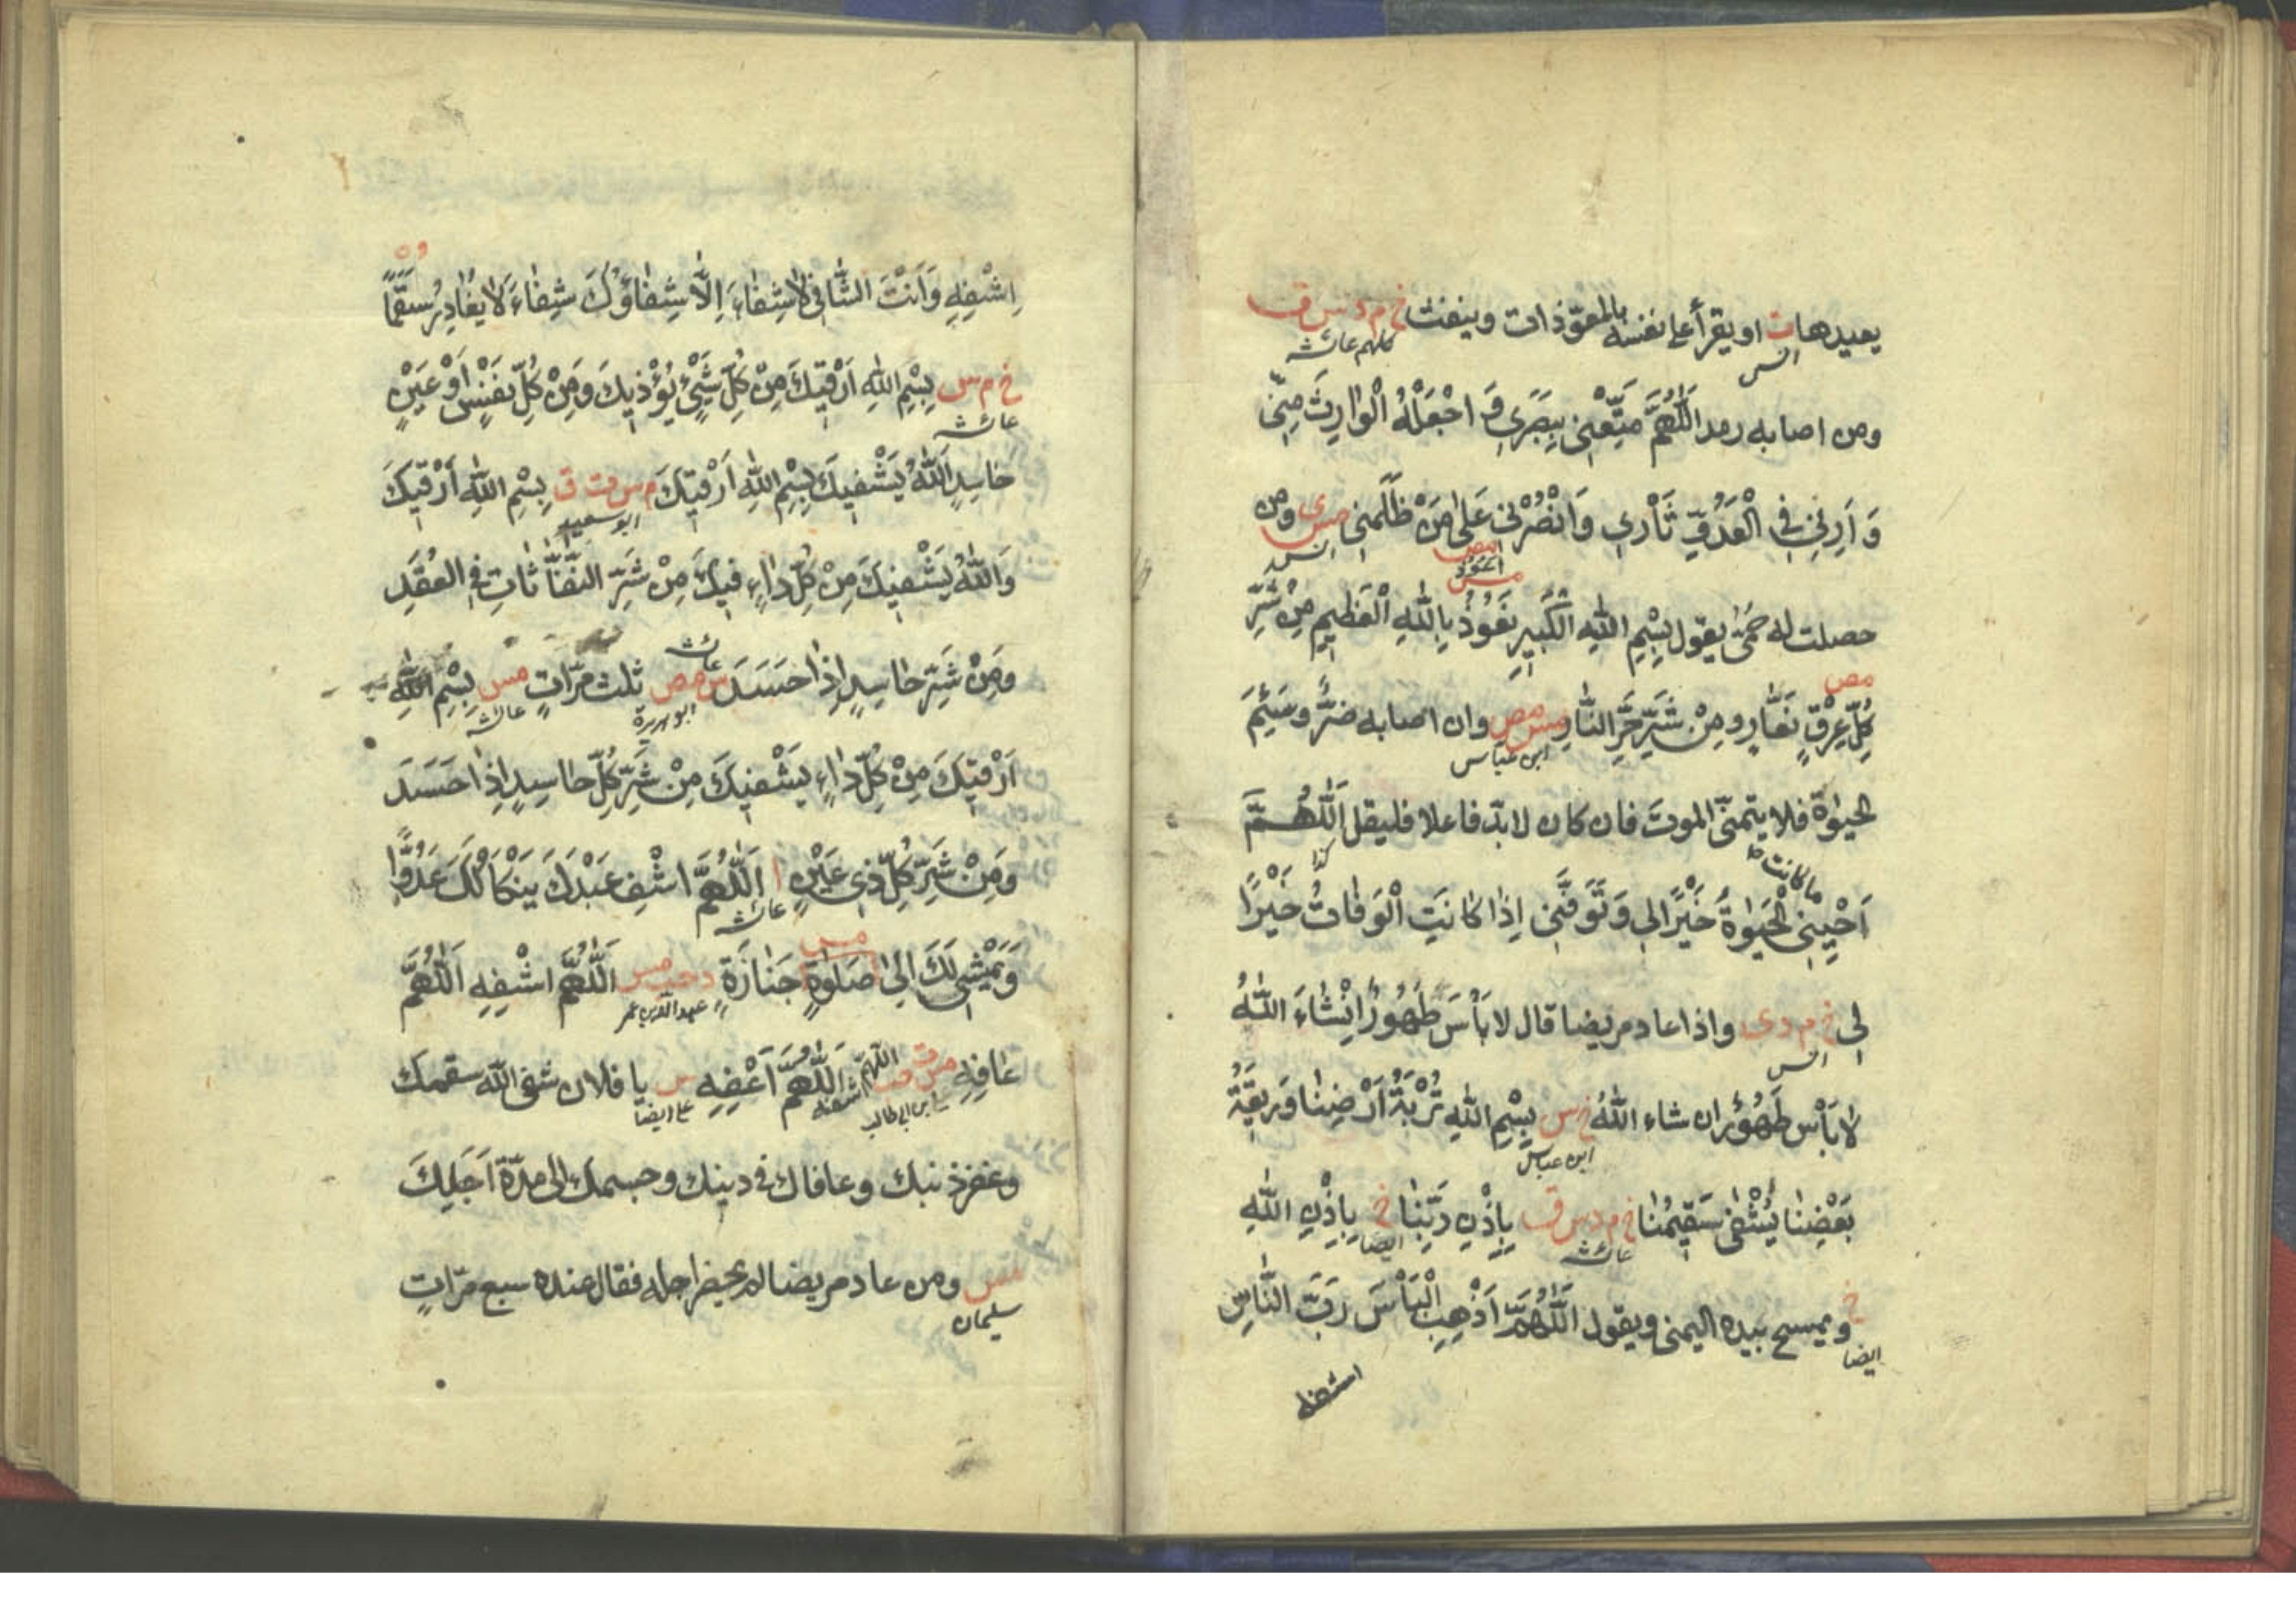 يعيدها ت او يقرأ على نفسه بالمعوّذات وينفث خ م د س ق
انس
كلهم عائشة
ومن اصابه رمد اَللّٰهُمَّ مَتِّعْنِي بِبَصَرِي وَ اجْعَلْهُ الْوَارِثَ مِنِّي
وَ اَرِنِي فِي الْعَدُوِّ ثَأْرِي وَانْصُرْنِي عَلٰى مَنْ ظَلَمَنِي مس ى ومن
انس
حصلت له حمّى يقول بِسْمِ اللّٰهِ الْكَبِيرِ نَعُوذُ بِاللّٰهِ الْعَظِيمِ مِنْ شَرِّ
اعوذ
مس
مص
كُلِّ عِرْقٍ نَعَّارٍ ومِنْ شَرِّ حَرِّ النَّارِ مس مص وان اصابه ضرّ وسَئِمَ
ابن عباس
الحيوة فلا يتمنّى الموت فان كان لا بدّ فاعلا فليقل اَللّٰهُمَّ
اَحْيِنِي مَا كَانَتِ الْحَيٰوةُ خَيْرًا لِي وَتَوَفَّنِي اِذَا كَانَتِ الْوَفَاتُ خَيْرًا
كذا
لِي خ م د ى واذا عاد مريضا قال لا بَأْسَ طَهُورٌ اِنْشَاءَ اللّٰهُ
انس
لَا بَأْس طَهُورٌ ان شاء اللّٰهُ خ س بِسْمِ اللّٰهِ تُرْبَةُ اَرْضِنَا وَرِيقَةُ
ابن عباس
بَعْضِنَا يُشْفٰى سَقِيمُنَا خ م د س ق بِاِذْنِ رَبِّنَا خ بِاِذْنِ اللّٰهِ
عائشة
ايضا
خ ويمسح بيده اليمنى ويقول اَللّٰهُمَّ اَذْهِبِ الْبَأْسَ رَبَّ النَّاسِ
ايضا
اشفه
اِشْفِهِ وَاَنْتَ الشَّافِي لَا شِفَاءَ اِلَّا شِفَاؤُكَ شِفَاءً لَا يُغَادِرُ سَقَمًا
خ م س بِسْمِ اللّٰهِ اَرْقِيكَ مِنْ كُلِّ شَيْءٍ يُؤْذِيكَ وَمِنْ كُلِّ نَفْسٍ اَوْ عَيْنٍ
عائشة
حَاسِدٍ اَللّٰهُ يَشْفِيكَ بِسْمِ اللّٰهِ اَرْقِيكَ م س ت ق بِسْمِ اللّٰهِ اَرْقِيكَ
ابو سعيد
وَاللّٰهُ يَشْفِيكَ مِنْ كُلِّ دَاءٍ فِيكَ مِنْ شَرِّ النَّفَّاثَاتِ فِي العُقَدِ
ومِنْ شَرِّ حَاسِدٍ اِذَا حَسَدَ س مص ثلث مرّاتٍ مس بِسْمِ اللّٰهِ
عائشة
ابو هريرة
عائشة
اَرْقِيكَ مِنْ كُلِّ دَاءٍ يَشْفِيكَ مِنْ شَرِّ كُلِّ حَاسِدٍ اِذَا حَسَدَ
ومِنْ شَرِّ كُلِّ ذِي عَيْنٍ ا اَللّٰهُمَّ اشْفِ عَبْدَكَ يَنْكَأْ لَكَ عَدُوًّا
عائشة
وَيَمْشِي لَكَ اِلٰى صَلٰوةِ جَنَازَةٍ د حب مس اَللّٰهُمَّ اشْفِهِ اَللّٰهُمَّ
مس
عبد الله بن عمر
عَافِهِ مس ت حب اللّٰهم اشفه اَللّٰهُمَّ اَعْفِهِ س يا فلان شفى اللّٰه سقمك
على بن ابى طالب
على ايضا
وغفر ذنبك وعافاك في دينك وجسمك الى مدّة اَجَلِكَ
مس ومن عاد مريضا لم يحضر اجله فقال عنده سبع مرّاتٍ
سليمان